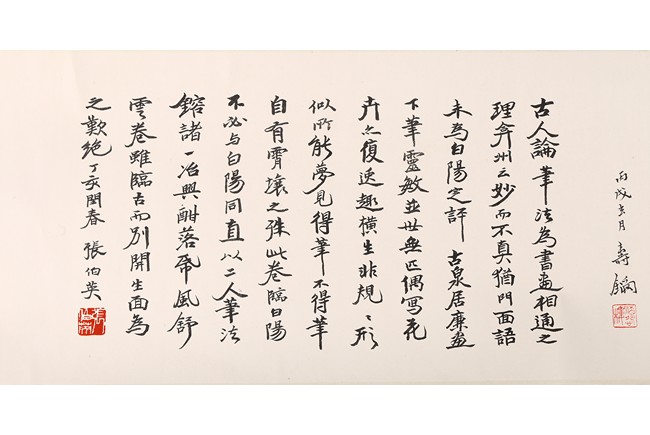 丙戌 月 壽
古人論筆法為書畫相通之
理弇州云妙而不真猶門面語
未為白陽定評 古泉居廉畫
下筆靈敏並世無匹偶寫花
卉亦復逸趣橫生非規〻形
似所能夢見得筆不得筆
自有霄壤之殊此卷臨白陽
不必與白陽同直以二人筆法
鎔諸一冶興酣落帋風舒
雲卷雖臨古而別開生面為
之歎絕丁亥閏春 張伯英
張伯英